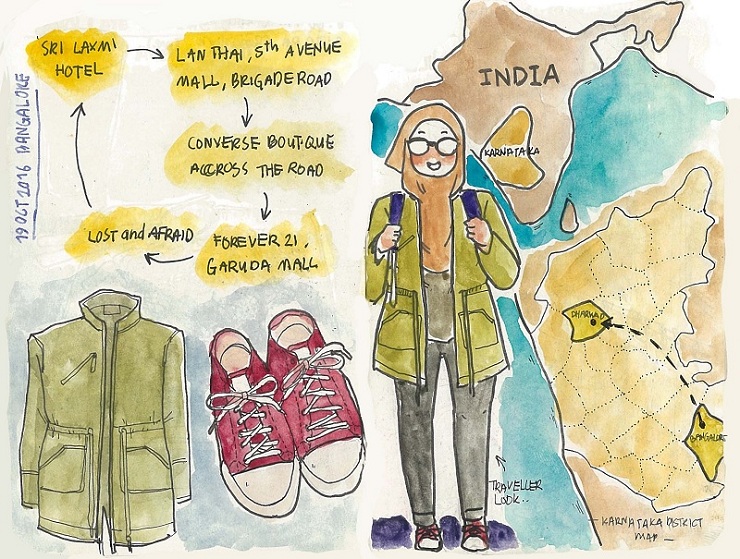 19 OCT 2016 BANGALORE
SRI LAXMI
HOTEL
LAN THAI, 5th AVENUE
MALL, BRIGADE ROAD
CONVERSE BOUTIQUE
ACCROSS THE ROAD
FOREVER 21,
GARUDA MALL
LOST and AFRAID
INDIA
KARNATAKA
DHARWAD
BANGALORE
TRAVELLER
LOOK..
— KARNATAKA DISTRICT
MAP —